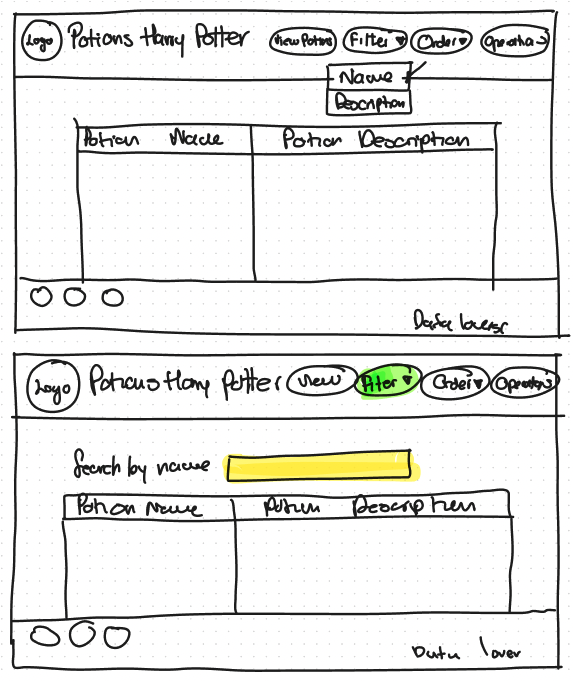 Logo Potions Harry Potter View Potions Filter Order Operations
Name
Description
Potion Name Potion Description
Data lovers
Logo Potions Harry Potter View Filter Order Operations
Search by name
Potion Name Potion Description
Data lover